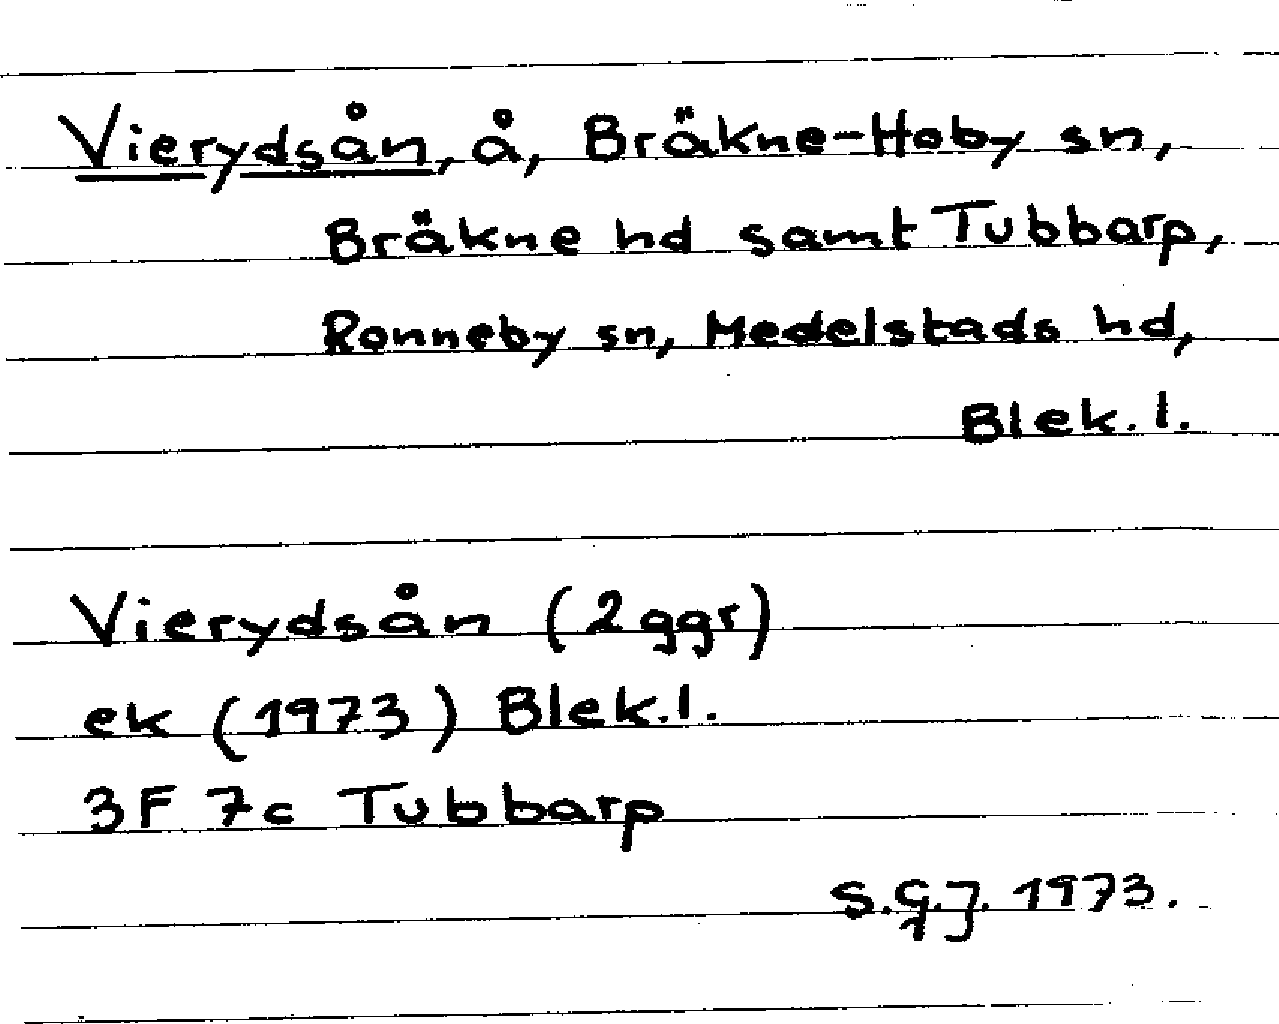 Vierydsån, å, Bräkne-Hoby sn,
Bräkne hd samt Tubbarp,
Ronneby sn, Medelstads hd,
Blek. l.
Vierydsån (2 ggr)
ek (1973) Blek. l.
3F 7c Tubbarp
S.G.J. 1973.